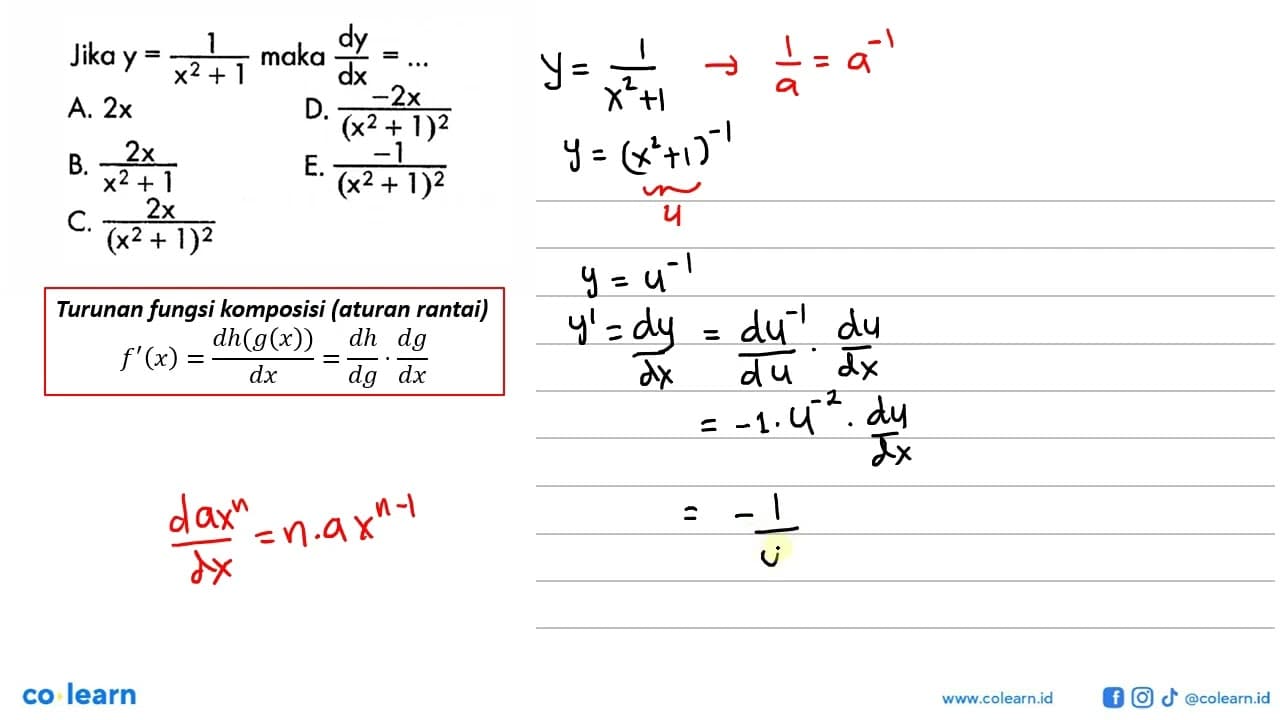 Jika y = 1/(x² + 1) maka dy/dx = ...
A. 2x
D. -2x/(x² + 1)²
B. 2x/(x² + 1)
E. -1/(x² + 1)²
C. 2x/(x² + 1)²
Turunan fungsi komposisi (aturan rantai)
f'(x) = dh(g(x))/dx = dh/dg · dg/dx
dax^n/dx = n.ax^(n-1)
y = 1/(x²+1) → 1/a = a^-1
y = (x²+1)^-1
u
y = u^-1
y' = dy/dx = du^-1/du · du/dx
= -1. u^-2 . du/dx
= - 1/u
co learn
www.colearn.id
@colearn.id